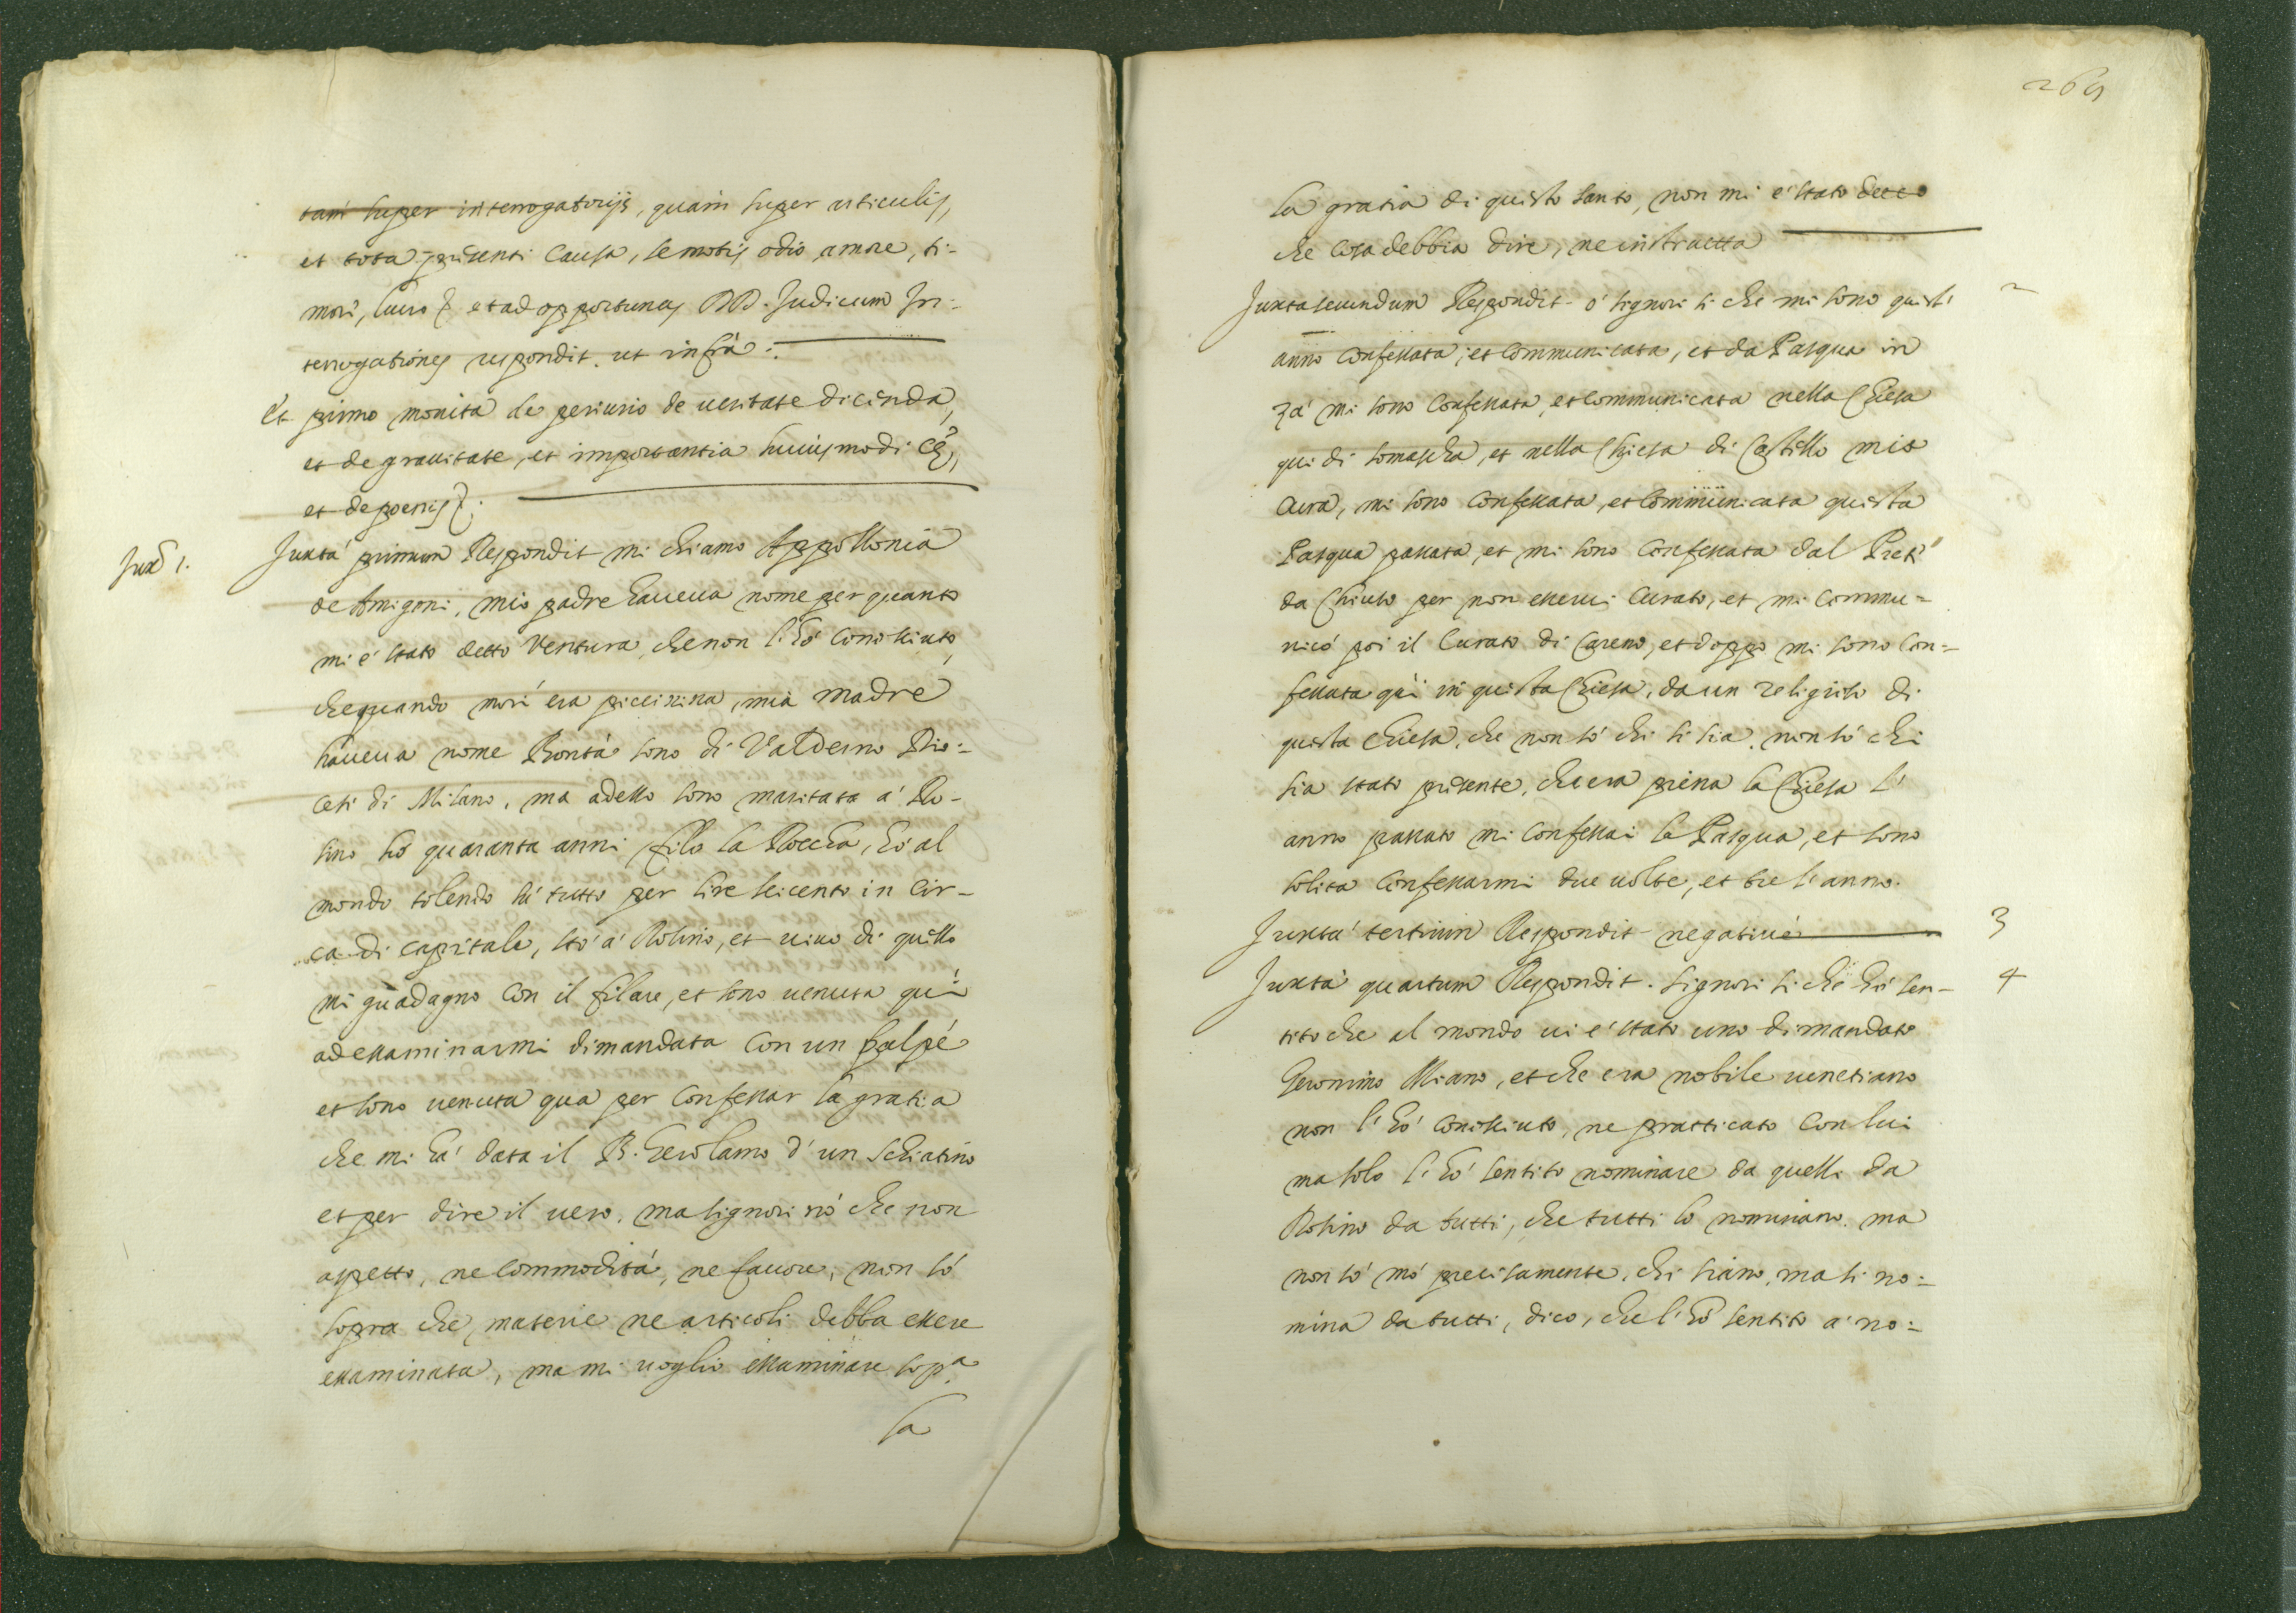 tam super interrogatorijs, quam super articulis,
et tota presenti Causa, semotis odio, amore, ti-
mori, lucro & et ad opportunas DD. Judicum In-
terrogationes respondit. ut infrà:
Et primo monita de periurio de ueritate dicenda,
et de grauitate, et importantia huiusmodi Cę,
et de poenis &.
Juxᵃ 1.
Juxta primum Respondit mi chiamo Appollonia
de Amigoni, mio padre haueua nome per quanto
mi è stato detto Ventura, che non l'hò conosciuto,
che quando morì era piccinina, mia madre
haueua nome Bonta sono di Valderno Dio-
cesi di Milano, ma adesso sono maritata à Ro-
sino hò quaranta anni filo la Roccha, hò al
mondo tolendo sù tutto per lire seicento in Cir-
ca di capitale, stò à Rosino, et uiuo di quello
mi guadagno con il filare, et sono uenuta quì
ad essaminarmi dimandata con un polpé
et sono uenuta qua per Confessar la gratia
che mi hà data il B. Gerolamo d'un schiatino
et per dire il uero, ma signori nò che non
aspetto, ne Commodità, ne fauore, non sò
sopra che materie ne articoli debba essere
essaminata, ma mi uoglio essaminare sopᵃ
la
269
la gratia di questo santo, non mi è stato detto
che cosa debbia dire, ne instructta
Juxta secundum Respondit ò signori si che mi sono quest' 2
anno Confessata, et Communicata, et da Pasqua in
zà mi sono Confessata, et Communicata nella Chiesa
qui di somascha, et nella Chiesa di Castello mia
Cura, mi sono Confessata, et Communicata questa
Pasqua passata, et mi sono Confessata dal Preti
da Chiuso per non esserui Curato, et mi Commu-
nicò poi il Curato di Careno, et doppo mi sono Con-
fessata qui in questa Chiesa, da un religioso di
questa Chiesa, che non sò chi si sia, non sò chi
sia stato presente, che era piena la Chiesa l'
anno passato mi Confessai la Pasqua, et sono
solita Confessarmi due uolte, et tre l'anno.
Juxta tertium Respondit negatiuè 3
Juxta quartum Respondit. signori si che hò sen- 4
tito che al mondo ui è stato uno dimandato
Geronimo Miano, et che era nobile uenetiano
non l'hò conosciuto, ne pratticato Con lui
ma solo l'hò sentito nominare da quelli da
Rosino da tutti, che tutti lo nominano. ma
non sò mò precisamente, chi siano, ma si no-
mina da tutti, dico, che l'hò sentito à no-